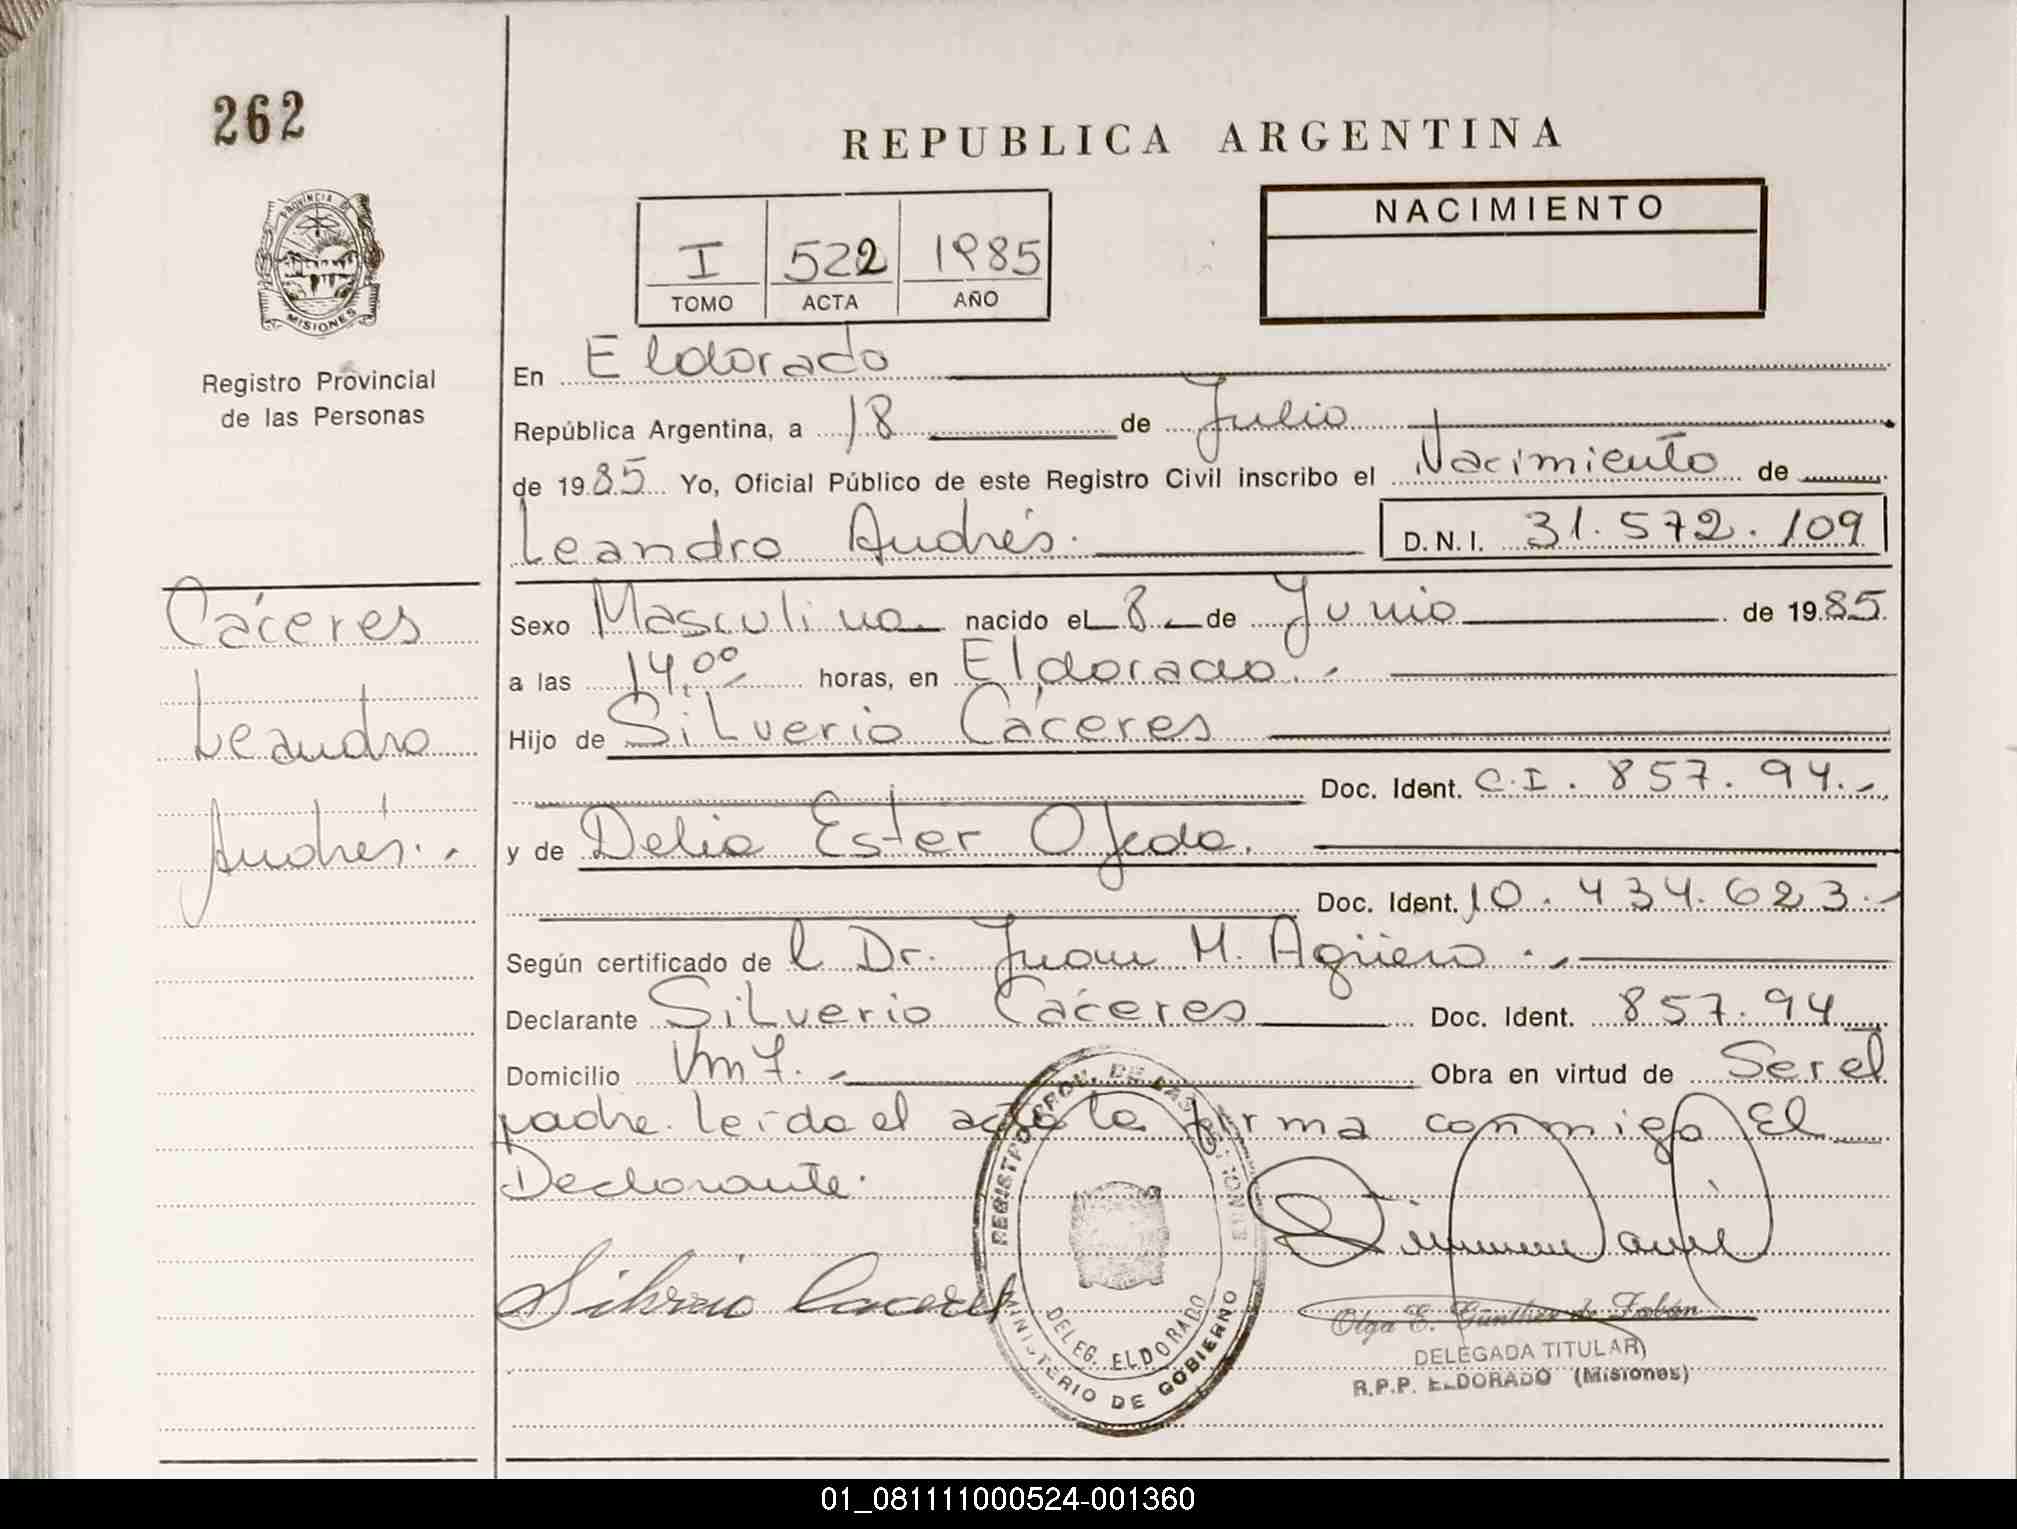 262
REPUBLICA ARGENTINA
PROVINCIA D
MISIONES
Registro Provincial
de las Personas
I 522 1985
TOMO ACTA AÑO
NACIMIENTO
En Eldorado
República Argentina, a 18 de Julio
de 1985 Yo, Oficial Público de este Registro Civil inscribo el Nacimiento de
Leandro Andrés. D.N.I. 31.572.109
Cáceres
Leandro
Andrés.-
Sexo Masculino nacido el 8 de Junio de 1985
a las 14,00 horas, en Eldorado.-
Hijo de Silverio Cáceres
Doc. Ident. C.I. 857.94.-
y de Delia Ester Ojeda.
Doc. Ident. 10.434.623.-
Según certificado de l Dr. Juan M. Agüero.-
Declarante Silverio Cáceres Doc. Ident. 857.94
Domicilio Km 7.- Obra en virtud de Ser el
padre. Leída el acta la firma conmigo El
Declarante.
Silverio Caceres
REGISTRO PROV. DE LAS PERSONAS
MINISTERIO DE GOBIERNO
DELEG. ELDORADO
Olga E. Günther de Fabán
DELEGADA TITULAR
R.P.P. ELDORADO (Misiones)
01_081111000524-001360